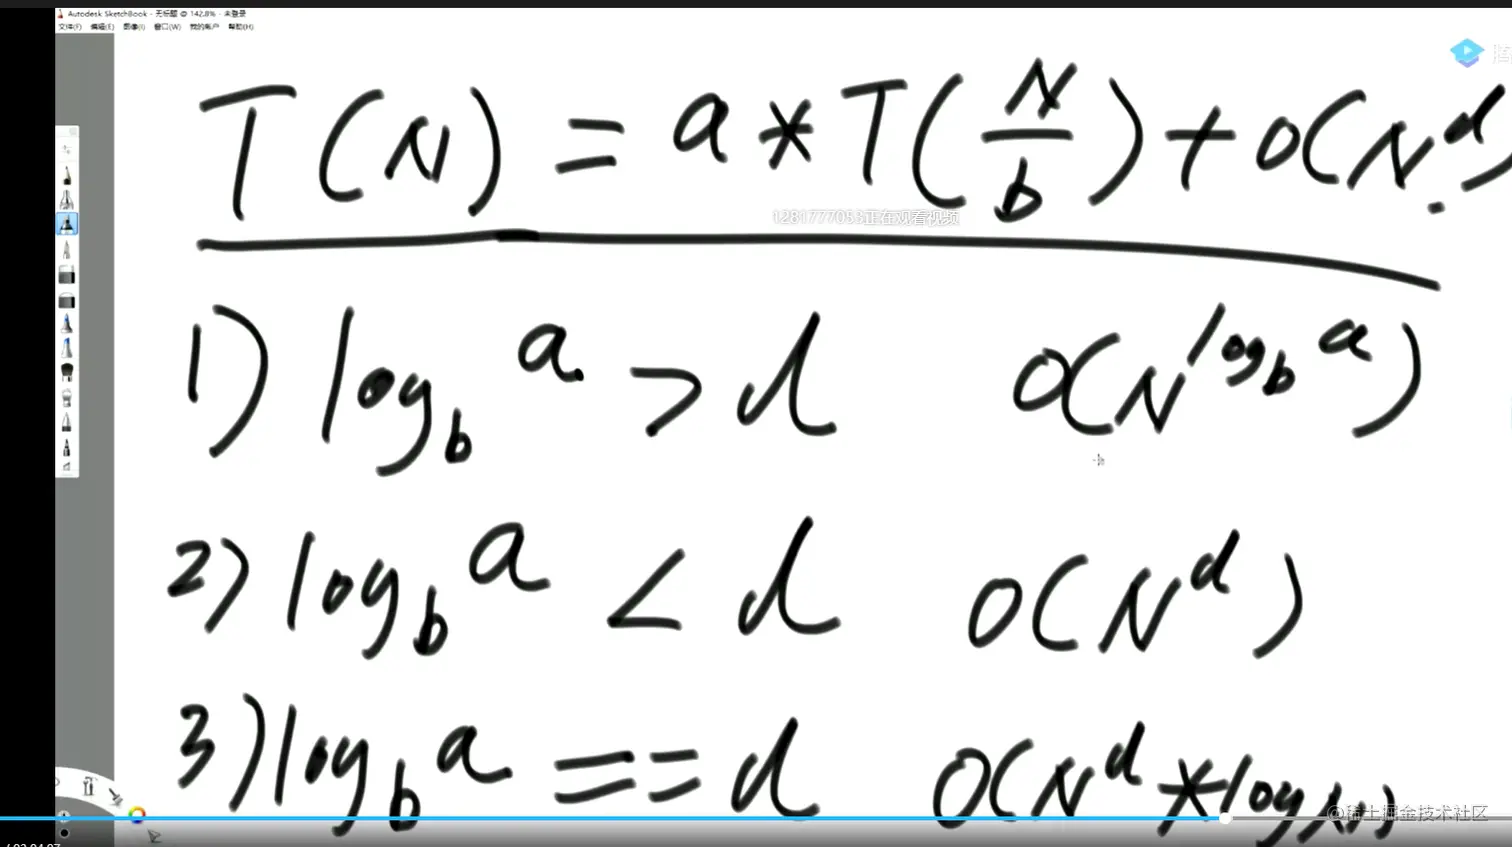 Autodesk SketchBook - 无标题 @ 142.8% - 未登录
文件(F) 编辑(E) 图像(I) 窗口(W) 我的帐户 帮助(H)
腾
T(N) = a * T(N/b) + O(N^d)
1281777053正在观看视频
1) log_b a > d O(N^log_b a)
2) log_b a < d O(N^d)
3) log_b a == d O(N^d * log N)
@稀土掘金技术社区